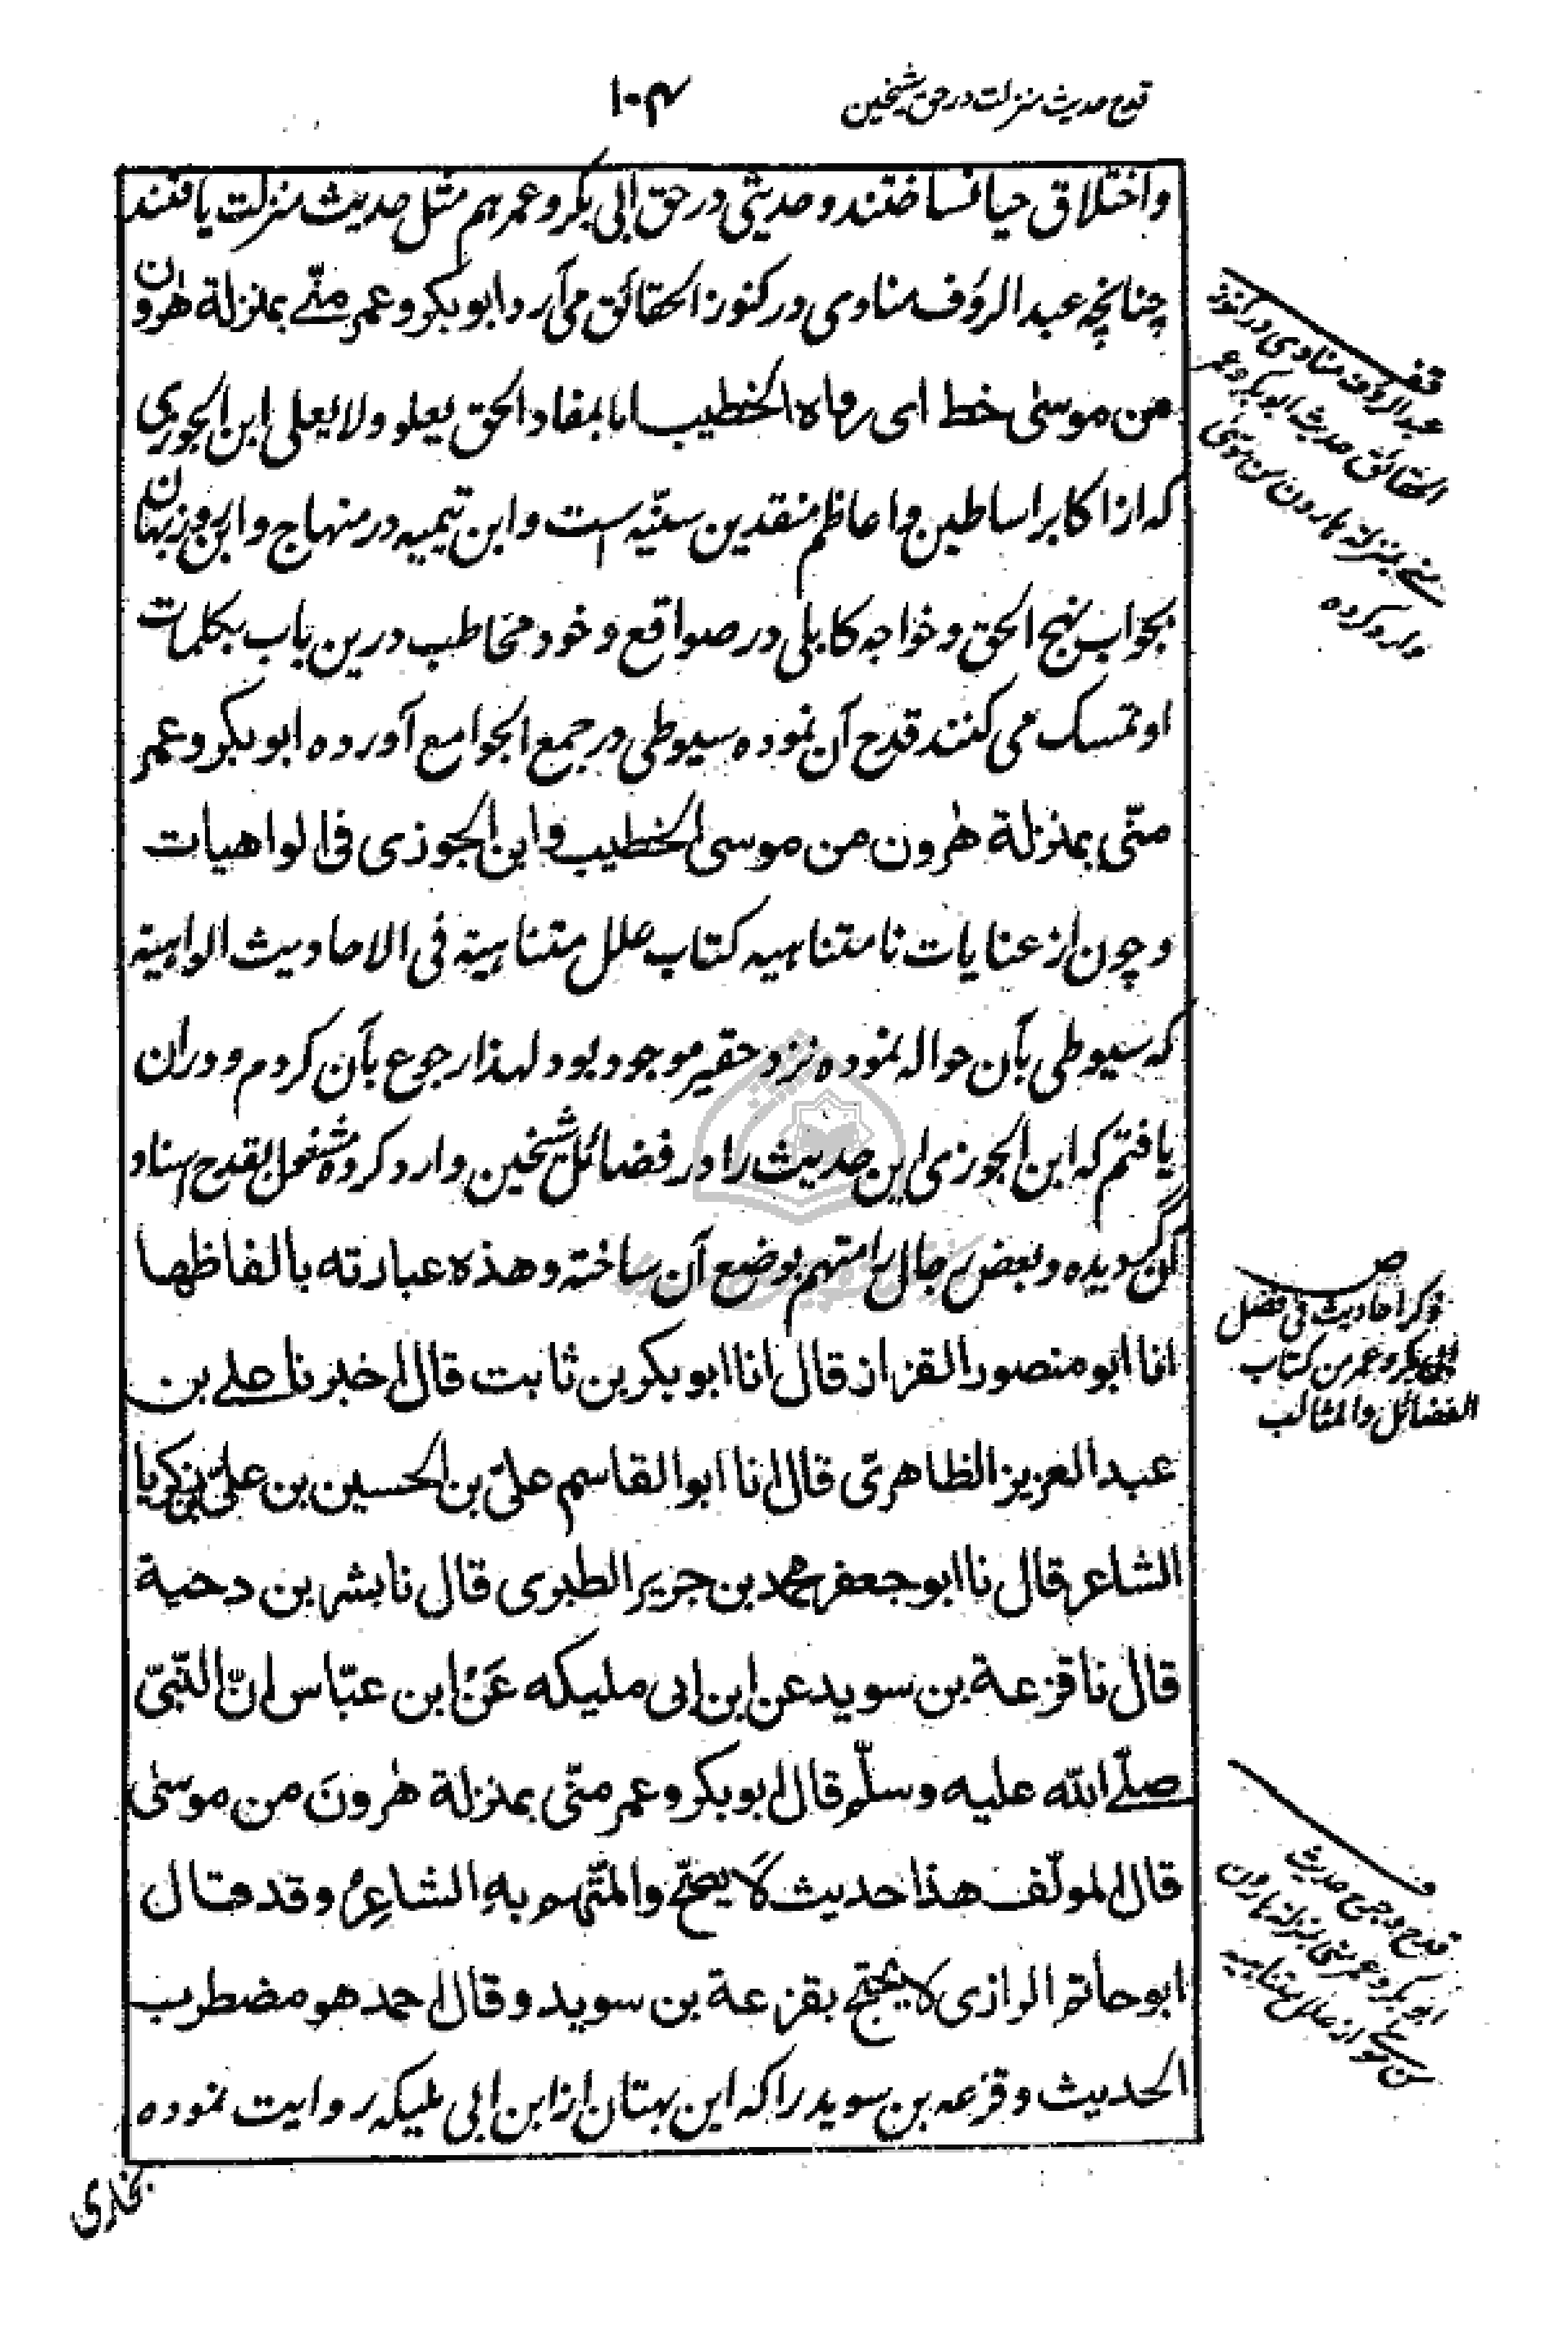 قدح حدیث منزلت در حق شیخین
۱۰۴
واختلاق حیا نساختند و حدیثی در حق ابی بکر و عمر هم مثل حدیث منزلت یافتند
چنانچه عبد الرؤف مناوی در کنوز الحقائق می آرد ابو بکر و عمر منّے بمنزلة هٰرون
من موسیٰ خط ای رواه الخطیب اما بمفاد الحق یعلو ولا یعلی ابن الجوزی
که از اکابر اساطین و اعاظم منقدین سنّیه است و ابن تیمیه در منهاج و ابن روزبهان
بجواب نهج الحق و خواجه کابلی در صواقع و خود مخاطب درین باب بکلمات
او تمسک می کنند قدح آن نموده سیوطی در جمع الجوامع آورده ابو بکر و عمر
منّی بمنزلة هٰرون من موسی الخطیب و ابن الجوزی فی الواهیات
و چون از عنایات نامتناهیه کتاب علل متناهیة فی الاحادیث الواهیة
که سیوطی بآن حواله نموده نزد حقیر موجود بود لهذا رجوع بآن کردم و دران
یافتم که ابن الجوزی این حدیث را در فضائل شیخین وارد کرده مشغول بقدح اسناد
آن گردیده و بعض رجال را متهم بوضع آن ساخته و هذه عبارته بالفاظها
انا ابو منصور القزاز قال انا ابو بکر بن ثابت قال اخبرنا علے بن
عبد العزیز الظاهریّ قال انا ابو القاسم علیّ بن الحسین بن علیّ بن زکریا
الشاعر قال نا ابو جعفر محمد بن جریر الطبری قال نا بشر بن دحیة
قال نا قزعة بن سوید عن ابن ابی ملیکه عَنْ ابن عبّاس انّ النّبیّ
صلّے الله علیه وسلّم قال ابو بکر و عمر منّی بمنزلة هٰرونَ من موسیٰ
قال المولّف هذا حدیث لا یصحّ والمتّهم بهِ الشاعِرُ وقد قال
ابو حاتم الرازی لا یحتجّ بقزعة بن سوید وقال احمد هو مضطرب
الحدیث و قزعه بن سوید را که این بهتان از ابن ابی ملیکه روایت نموده
بخاری
قف
عبد الرؤف مناوی در کنوز
الحقائق حدیث ابو بکر و عمر
منے بمنزلة هارون من موسیٰ
وارد کرده
ص
ذکر احادیث فی فضل
ابی بکر و عمر من کتاب
الفضائل والمثالب
ف
قدح و جرح حدیث
ابو بکر و عمر منی بمنزلة هارون
من موسے از علل متناهیه